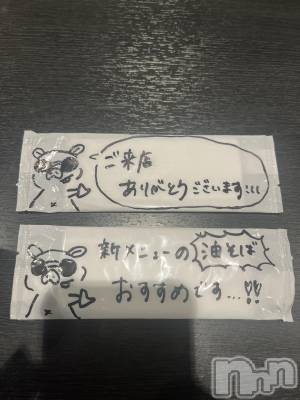 ご来店
ありがとうございます!!!
新メニューの油そば
おすすめです...!!
nnn